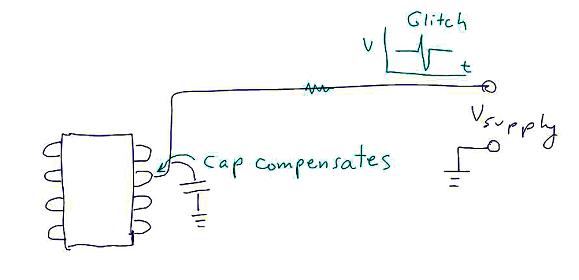 Glitch
V
t
Vsupply
Cap compensates